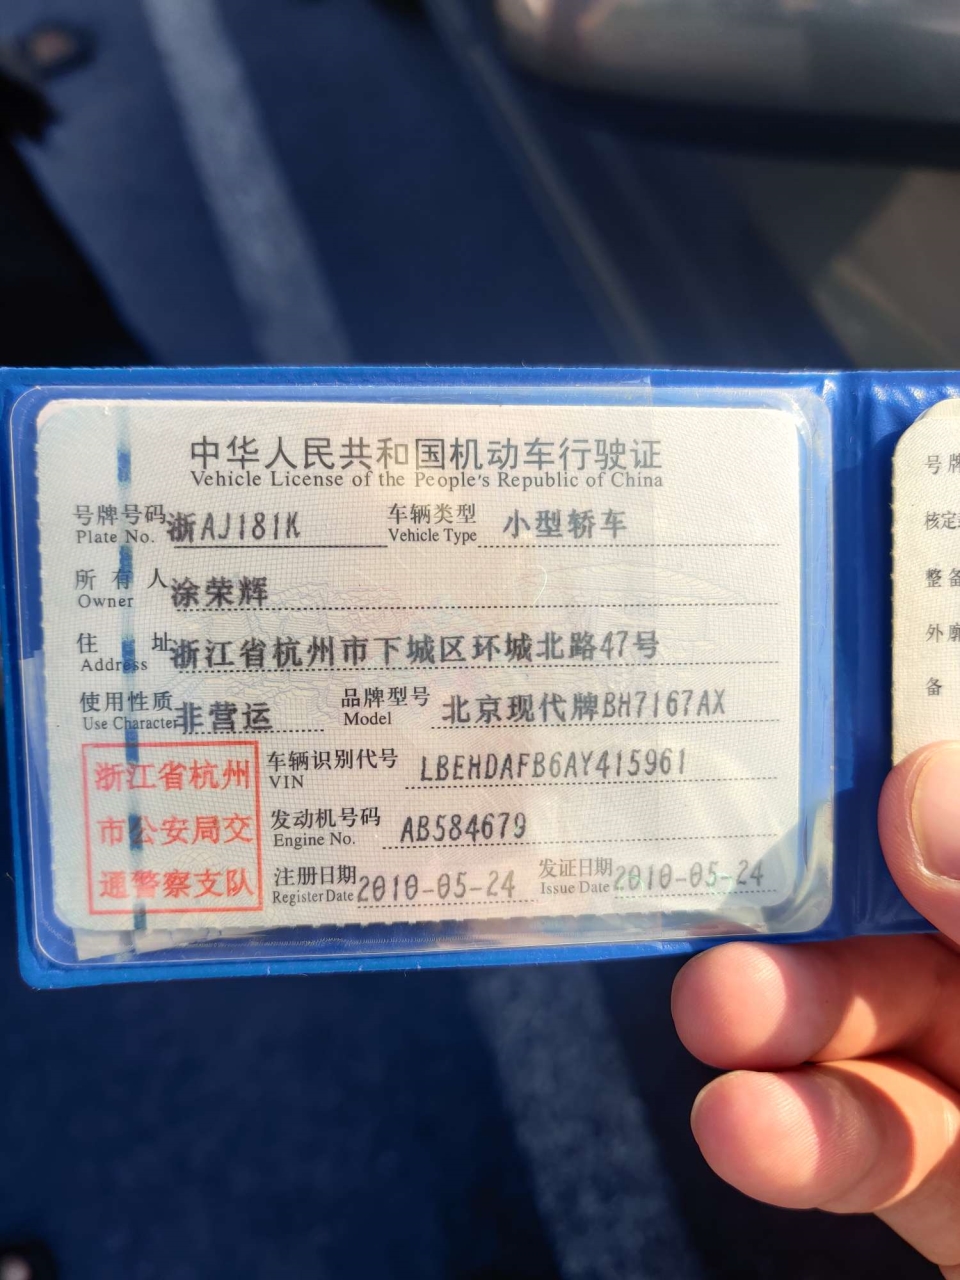 中华人民共和国机动车行驶证
Vehicle License of the People's Republic of China
号牌号码 浙AJ181K 车辆类型 小型轿车
Plate No. Vehicle Type
所有人 涂荣辉
Owner
住址 浙江省杭州市下城区环城北路47号
Address
使用性质 非营运 品牌型号 北京现代牌BH7167AX
Use Character Model
浙江省杭州
市公安局交
通警察支队
车辆识别代号 LBEHDAFB6AY415961
VIN
发动机号码 AB584679
Engine No.
注册日期 2010-05-24 发证日期 2010-05-24
Register Date Issue Date
号牌
核定
整备
外廓
备